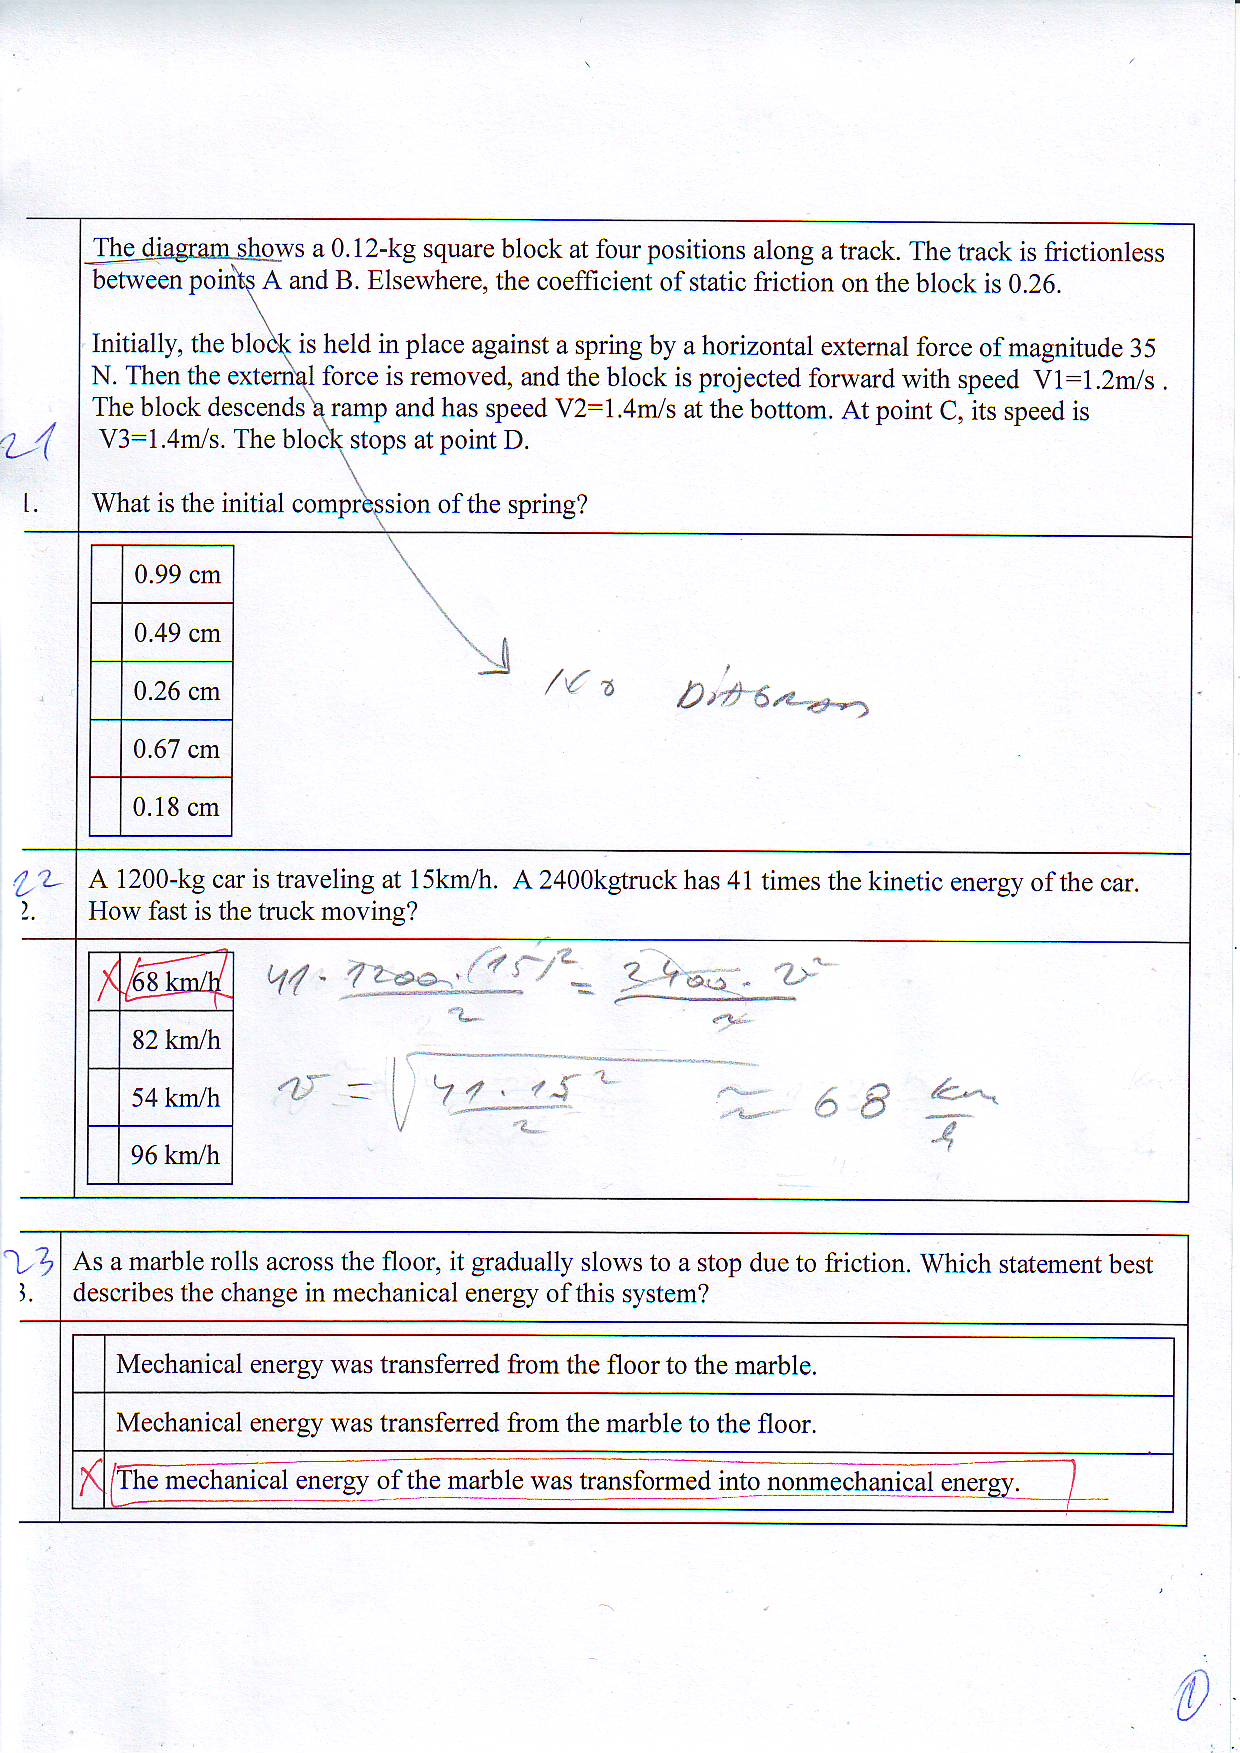 The diagram shows a 0.12-kg square block at four positions along a track. The track is frictionless
between points A and B. Elsewhere, the coefficient of static friction on the block is 0.26.
Initially, the block is held in place against a spring by a horizontal external force of magnitude 35
N. Then the external force is removed, and the block is projected forward with speed V1=1.2m/s .
The block descends a ramp and has speed V2=1.4m/s at the bottom. At point C, its speed is
21 V3=1.4m/s. The block stops at point D.
1. What is the initial compression of the spring?
0.99 cm
0.49 cm
0.26 cm
No DIAGRAM
0.67 cm
0.18 cm
22 A 1200-kg car is traveling at 15km/h. A 2400kgtruck has 41 times the kinetic energy of the car.
2. How fast is the truck moving?
X 68 km/h 41 · 1200 · (15)² / 2 = 2400 · v² / 2
82 km/h
54 km/h v = √ 41 · 15² / 2 ≈ 68 km/h
96 km/h
23 As a marble rolls across the floor, it gradually slows to a stop due to friction. Which statement best
3. describes the change in mechanical energy of this system?
Mechanical energy was transferred from the floor to the marble.
Mechanical energy was transferred from the marble to the floor.
X The mechanical energy of the marble was transformed into nonmechanical energy.
1